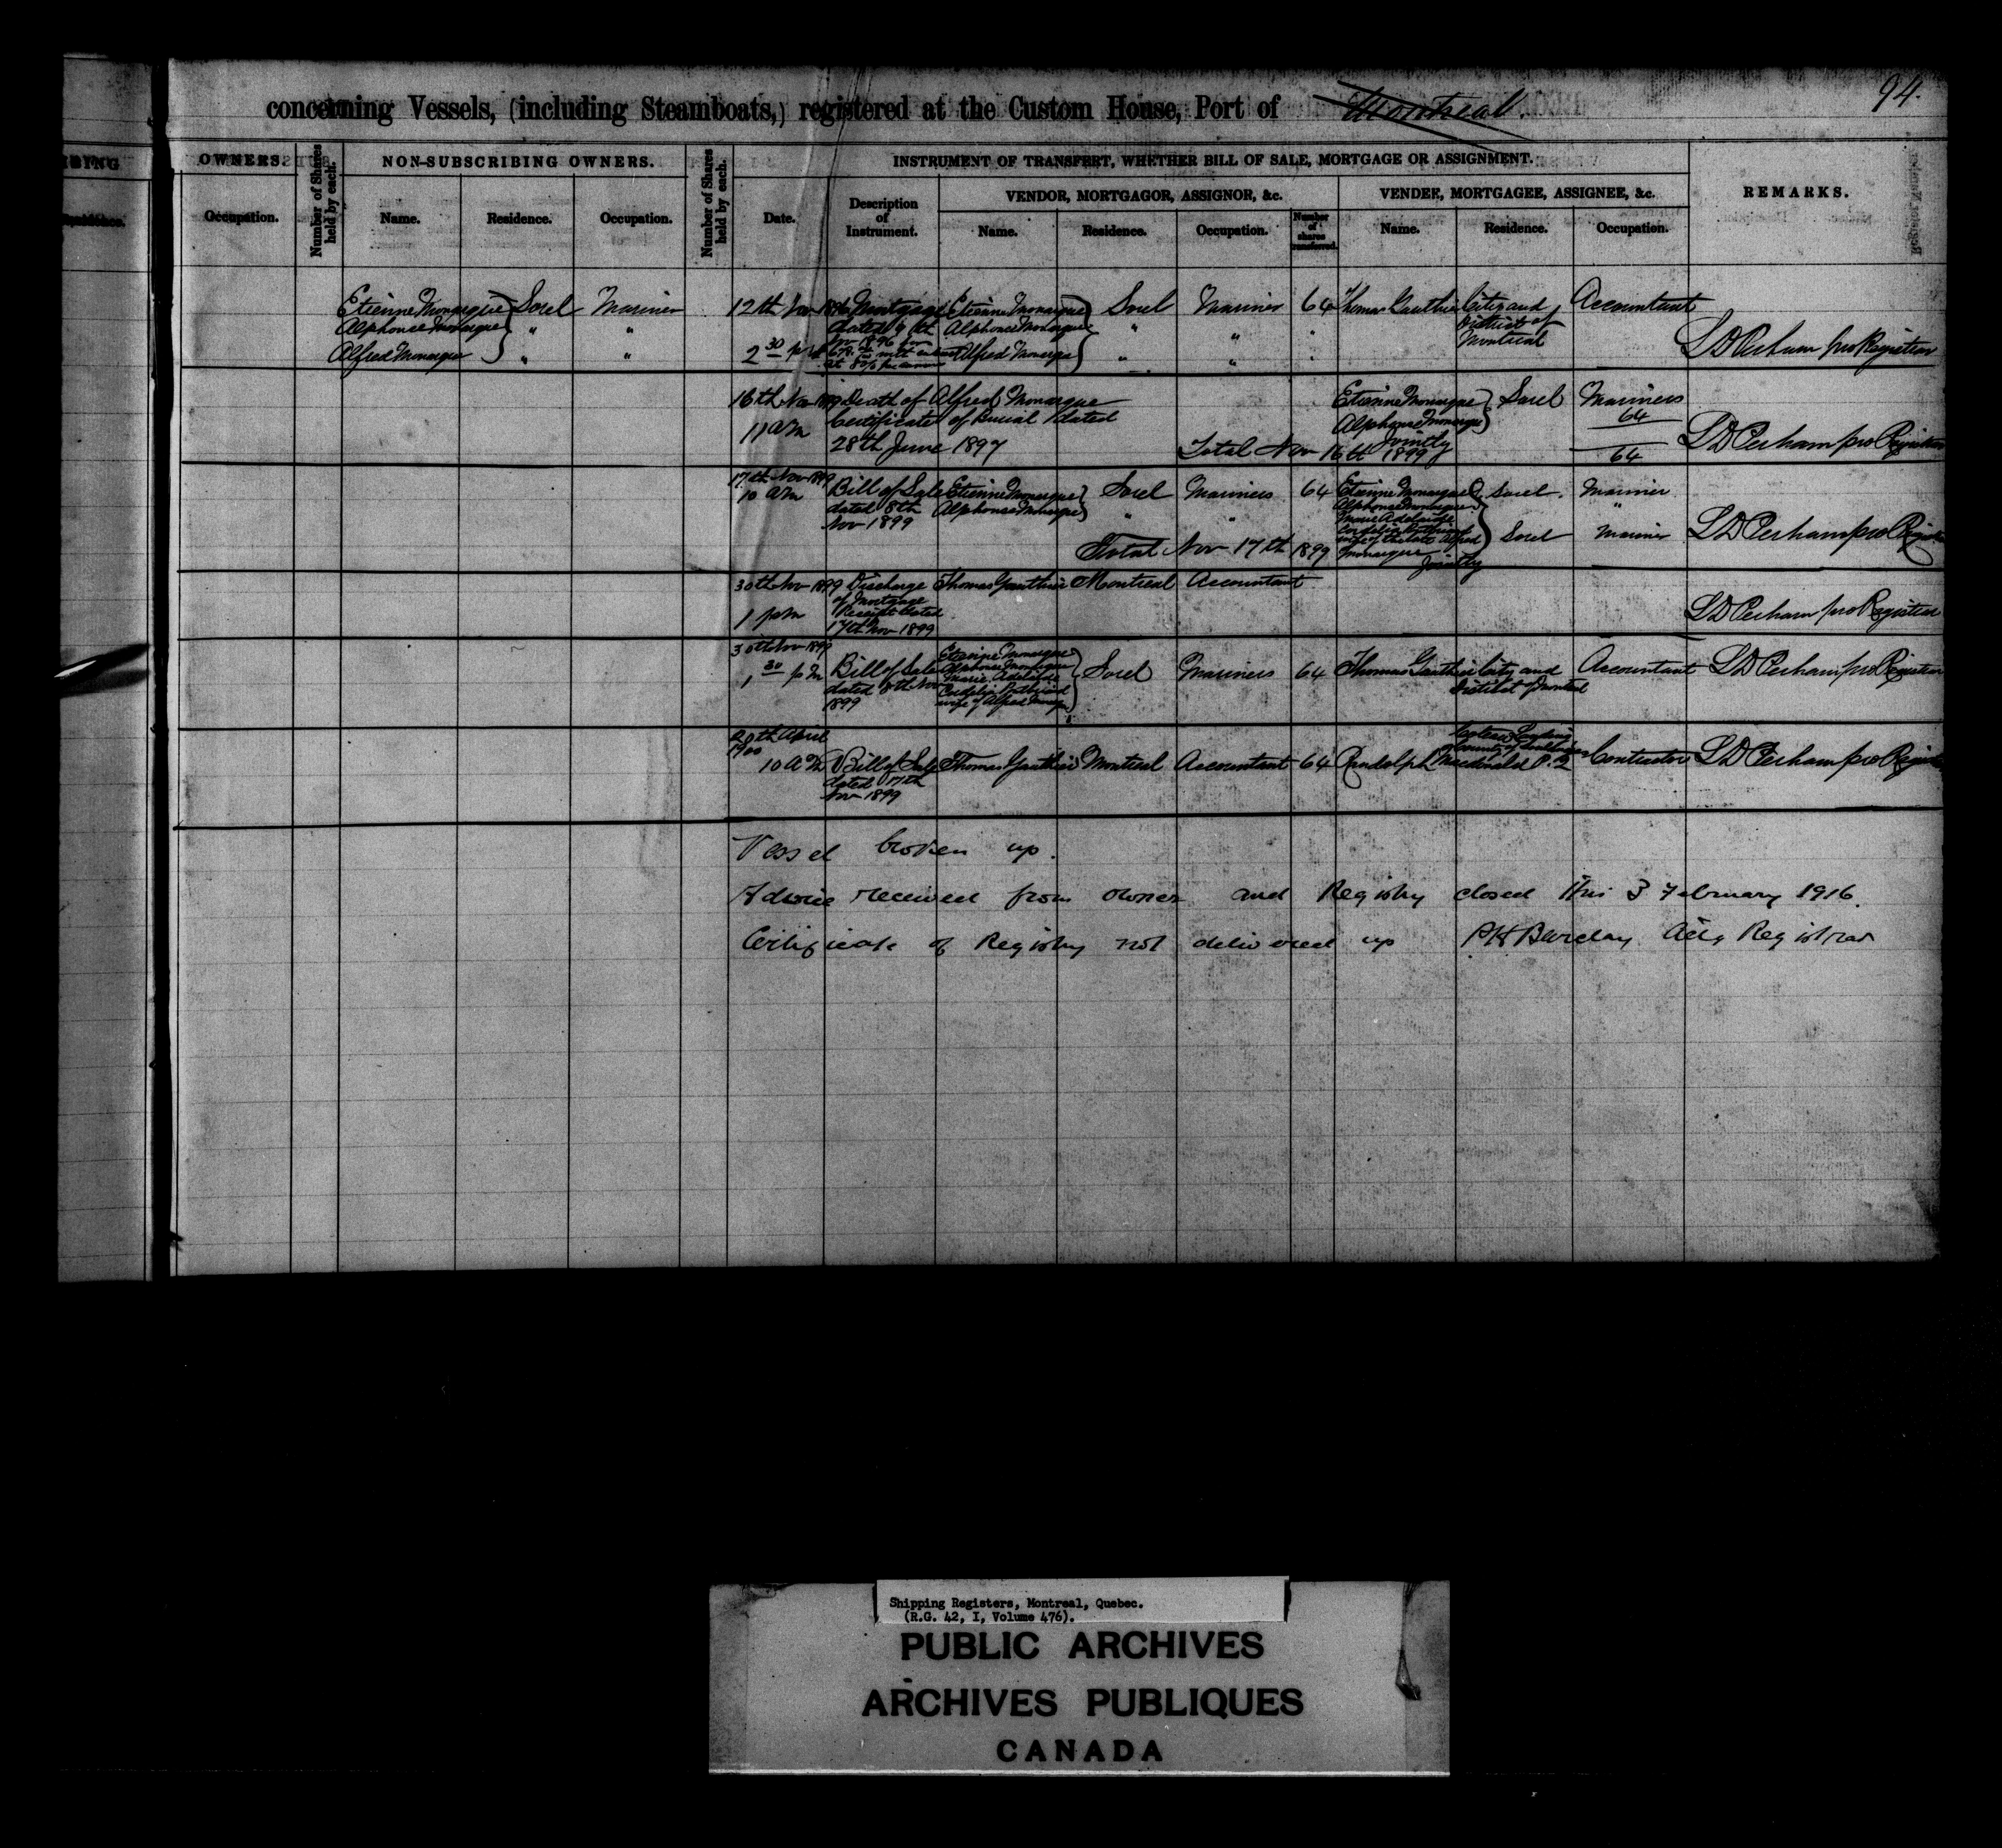 94.
concerning Vessels, (including Steamboats,) registered at the Custom House, Port of Montreal.
OWNERS.
Number of Shares held by each.
NON-SUBSCRIBING OWNERS.
Number of Shares held by each.
INSTRUMENT OF TRANSFERT, WHETHER BILL OF SALE, MORTGAGE OR ASSIGNMENT.
REMARKS.
Occupation.
Name.
Residence.
Occupation.
Date.
Description of Instrument.
VENDOR, MORTGAGOR, ASSIGNOR, &c.
VENDEE, MORTGAGEE, ASSIGNEE, &c.
Name.
Residence.
Occupation.
Number of shares transferred.
Name.
Residence.
Occupation.
Etienne Monarque Sorel Mariner
Alphonse Monarque " "
Alfred Monarque " "
12th Nov 1896 Mortgage Etienne Monarque Sorel Mariner 64 Thomas Gauthier City and Accountant
dated 9th Alphonse Monarque " " District of
Nov 1896 for Montreal
2 30 pm with interest Alfred Monarque " "
at 8 % per annum
S D Perham pro Registrar
16th Nov 1899 Death of Alfred Monarque Etienne Monarque Sorel Mariners
11 am Certificate of Burial dated Alphonse Monarque 64
28th June 1897 Jointly
Total Nov 16th 1899 64
S D Perham pro Registrar
17th Nov 1899
10 am Bill of Sale Etienne Monarque Sorel Mariners 64 Etienne Monarque Sorel. Mariner
dated 8th Alphonse Monarque " " Alphonse Monarque "
Nov 1899 Marie Adelaide
Cordelia
wife of the late Alfred Sorel Mariner
Total Nov 17th 1899 Monarque Jointly
S D Perham pro Registrar
30th Nov 1899 Discharge Thomas Gauthier Montreal Accountant
of Mortgage
1 pm Receipt dated
17th Nov 1899
S D Perham pro Registrar
30th Nov 1899
1 30 pm Bill of Sale Etienne Monarque Sorel Mariners 64 Thomas Gauthier City and Accountant S D Perham pro Registrar
dated 8th Nov Alphonse Monarque District of Montreal
1899 Marie Adelaide
Cordelia
wife of Alfred Monarque
20th April
1900
10 AM Bill of Sale Thomas Gauthier Montreal Accountant 64 Randolph Macdonald Coteau Landing County of Soulanges P.Q Contractor S D Perham pro Registrar
dated 17th
Nov 1899
Vessel broken up.
Advice received from owner and Registry closed this 3 February 1916.
Certificate of Registry not delivered up P H Barclay Actg Registrar
Shipping Registers, Montreal, Quebec.
(R.G. 42, I, Volume 476).
PUBLIC ARCHIVES
ARCHIVES PUBLIQUES
CANADA